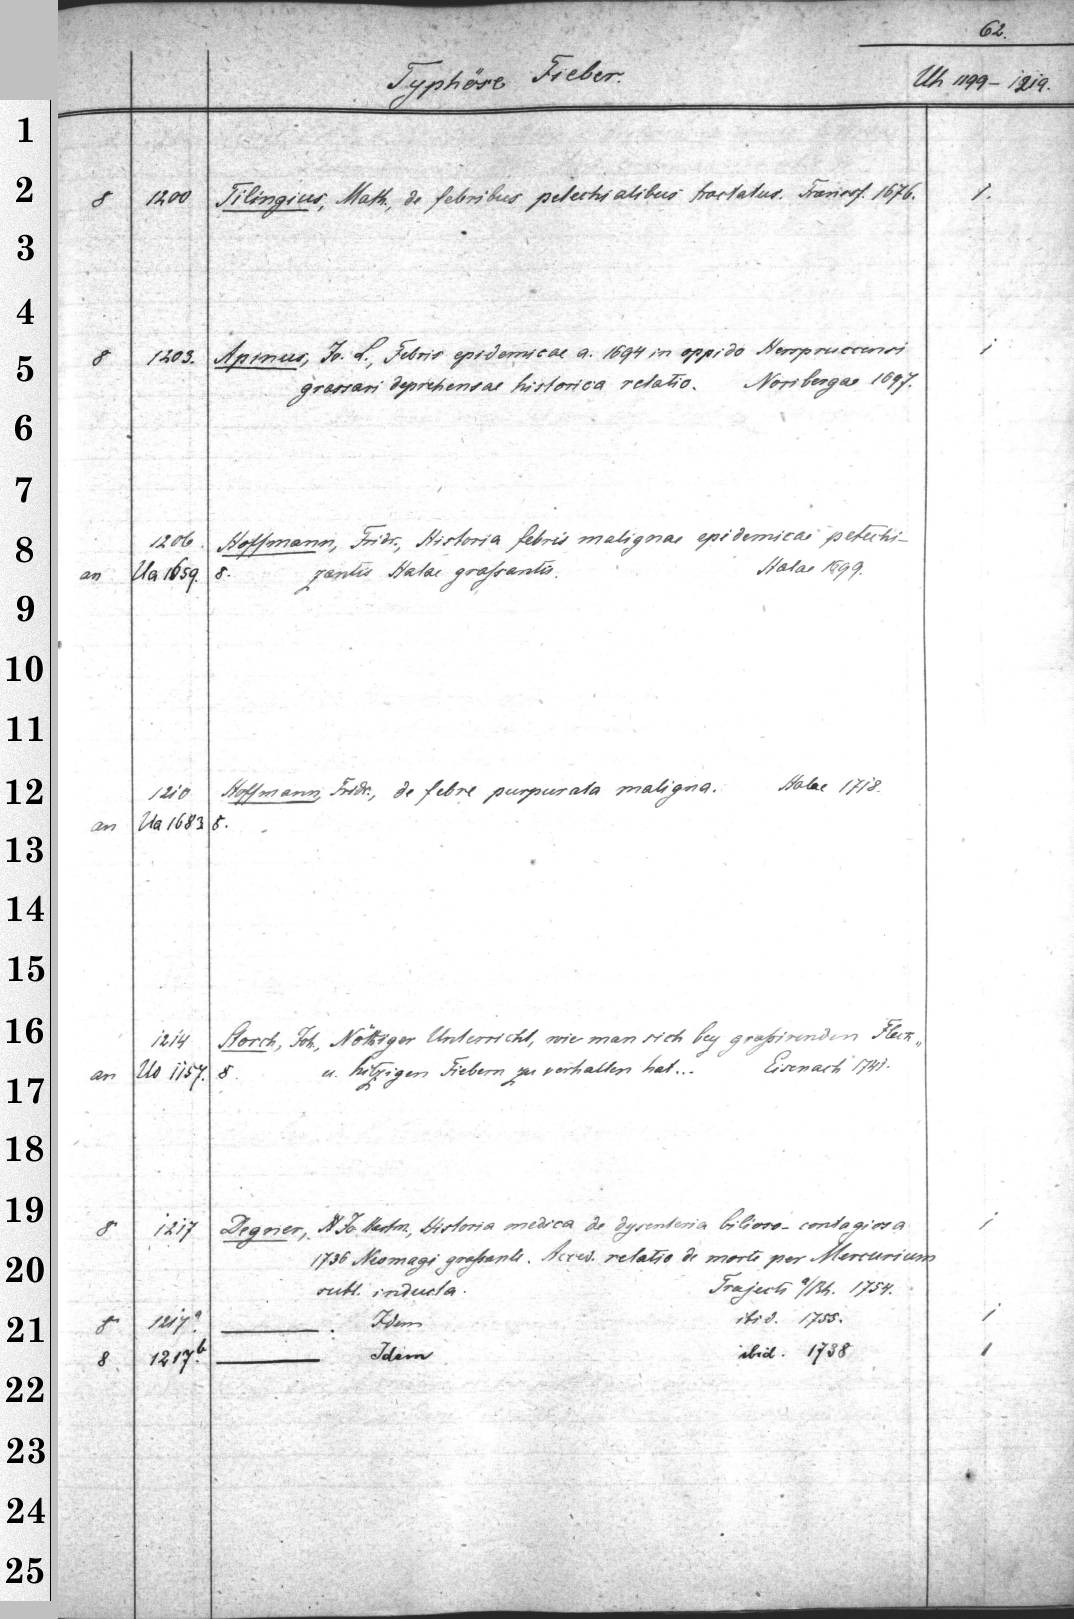 62.
Typhöse Fieber.
Uh 1199 - 1219.
1
2
8 1200 Tilingius, Math., de febribus petechialibus tractatus. Francof. 1676. 1.
3
4
5
8 1203. Apinus, Jo. L., Febris epidemicae a. 1694 in oppido Herspruccensi 1
grassari deprehensae historica relatio. Noribergae 1697.
6
7
8
1206. Hoffmann, Fridr., Historia febris malignae epidemicae petechi-
an Ua 1659. 8. zantis Halae graſsantis. Halae 1699.
9
10
11
12
1210 Hoffmann, Fridr., de febre purpurata maligna. Halae 1718.
an Ua 1683 8.
13
14
15
16
1214 Storch, Joh., Nöthiger Unterricht, wie man sich bey graſsirenden Fleck-
an Uo 1157. 8. u. hitzigen Fiebern zu verhalten hat... Eisenach 1741.
17
18
19
8 1217 Degner, Jo. Hartm., Historia medica de dysenteria bilioso-contagiosa 1
20
1736 Neomagi graſsante. Acced. relatio de morte per Mercurium
subl. inducta. Trajecti a/Rh. 1754.
21
8 1217a. Idem ibid. 1755. 1
8 1217b. Idem ibid. 1738 1
22
23
24
25